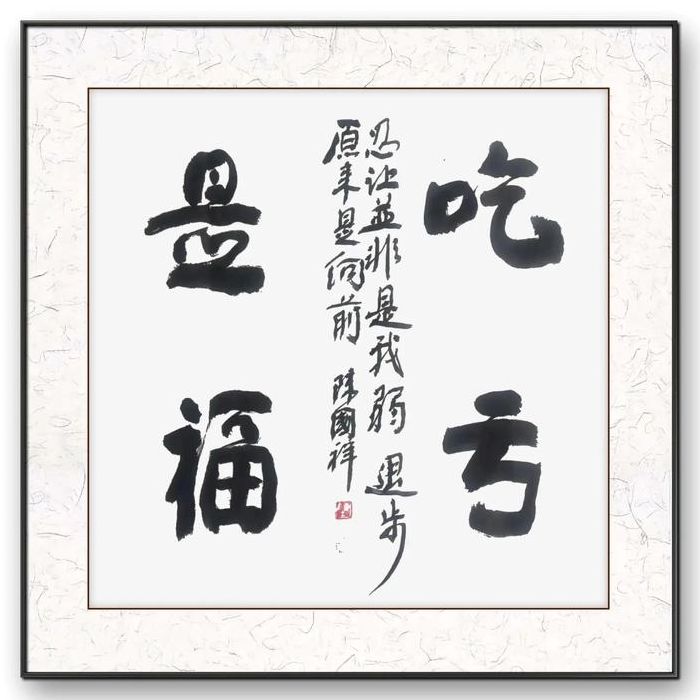 吃亏
是福
忍让並非是我弱 退步
原来是向前 陈國祥